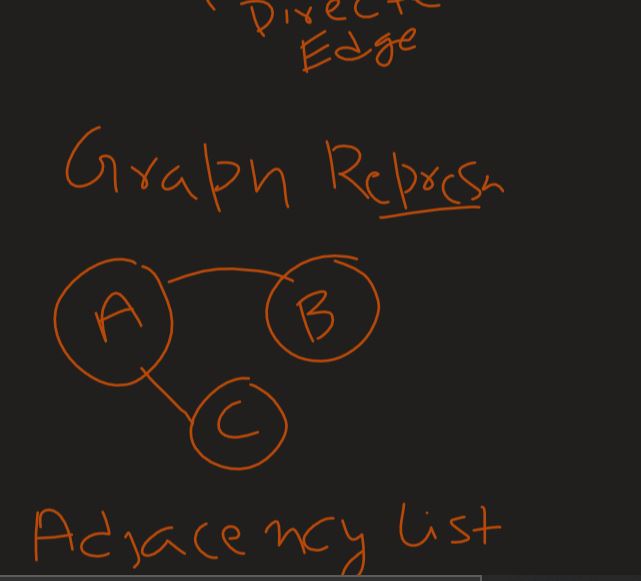 Direct
Edge
Graph Represn
A B
C
Adjacency List